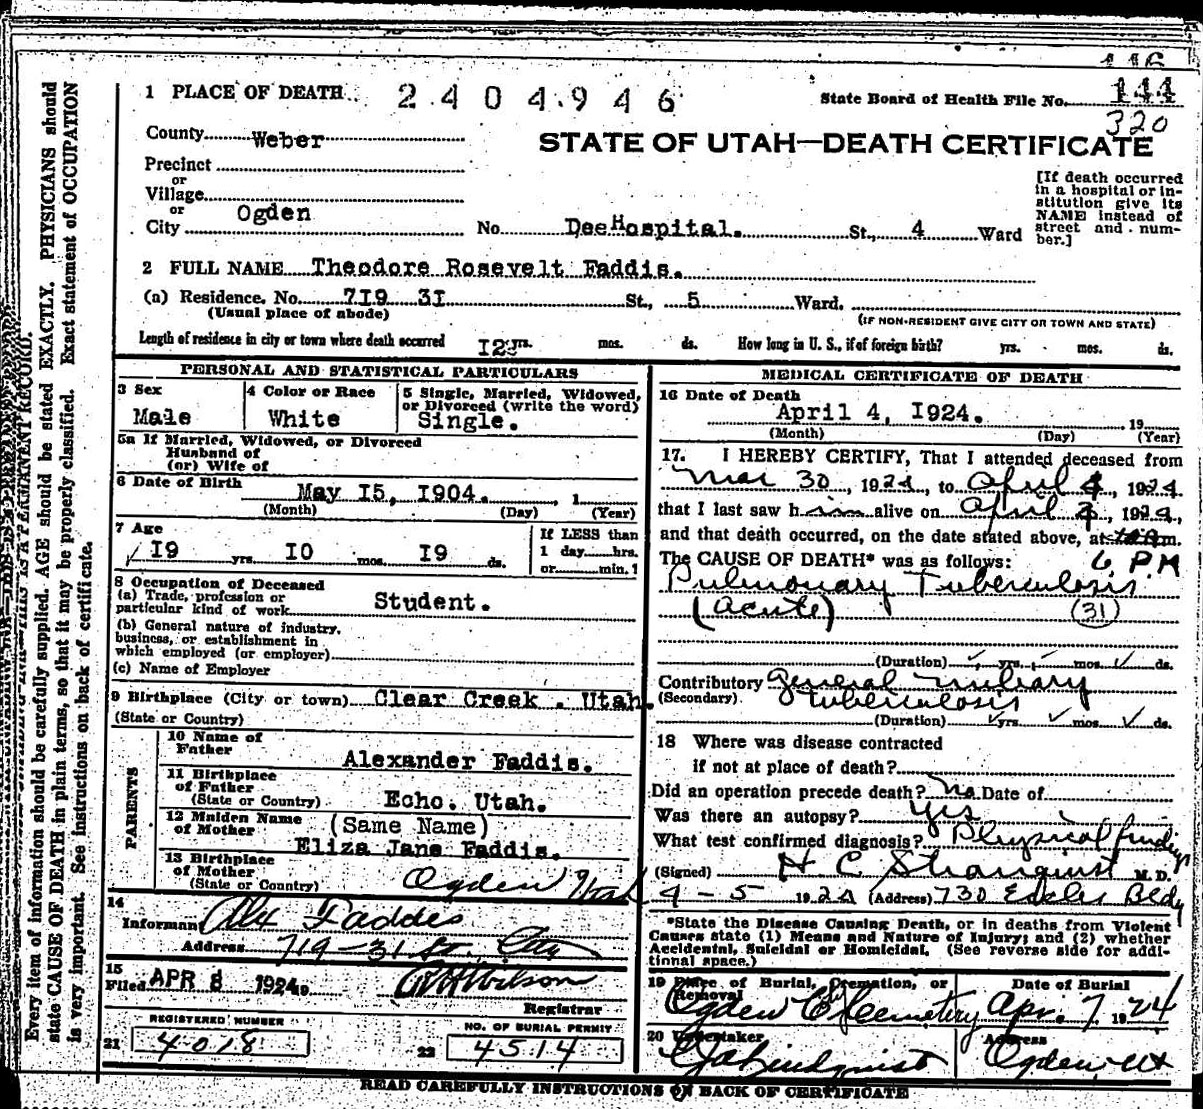 116
1 PLACE OF DEATH 2404946 State Board of Health File No. 144
320
County Weber
STATE OF UTAH—DEATH CERTIFICATE
Precinct
or
Village
or
City Ogden No. Dee Hospital. St., 4 Ward
[If death occurred in a hospital or institution give its NAME instead of street and number.]
2 FULL NAME Theodore Rosevelt Faddis.
(a) Residence. No. 7I9 3I St., 5 Ward.
(Usual place of abode) (IF NON-RESIDENT GIVE CITY OR TOWN AND STATE)
Length of residence in city or town where death occurred I2 yrs. mos. ds. How long in U. S., if of foreign birth? yrs. mos. ds.
PERSONAL AND STATISTICAL PARTICULARS
3 Sex Male
4 Color or Race White
5 Single, Married, Widowed, or Divorced (write the word) Single.
5a If Married, Widowed, or Divorced
Husband of
(or) Wife of
6 Date of Birth May I5, I904. , 1
(Month) (Day) (Year)
7 Age
I9 yrs. I0 mos. I9 ds.
If LESS than
1 day hrs.
or min.?
8 Occupation of Deceased
(a) Trade, profession or
particular kind of work Student.
(b) General nature of industry,
business, or establishment in
which employed (or employer)
(c) Name of Employer
9 Birthplace (City or town) Clear Creek . Utah.
(State or Country)
PARENTS
10 Name of Father Alexander Faddis.
11 Birthplace of Father
(State or Country) Echo. Utah.
12 Maiden Name of Mother (Same Name)
Eliza Jane Faddis.
13 Birthplace of Mother
(State or Country) Ogden Utah
14
Informant Alex Faddis
Address 719-31 St. City
15
Filed APR 8 1924 19
Registrar Wilson
REGISTERED NUMBER
21 4018
NO. OF BURIAL PERMIT
22 4514
MEDICAL CERTIFICATE OF DEATH
16 Date of Death
April 4, I924. 19
(Month) (Day) (Year)
17. I HEREBY CERTIFY, That I attended deceased from
Mar 30, 1924, to April 4, 1924
that I last saw him alive on April 4, 1924,
and that death occurred, on the date stated above, at m.
The CAUSE OF DEATH* was as follows: 6 P.M
Pulmonary Tuberculosis
(acute) (31)
(Duration) yrs. mos. ds.
Contributory General miliary
(Secondary) Tuberculosis
(Duration) yrs. mos. ds.
18 Where was disease contracted
if not at place of death?
Did an operation precede death? No Date of
Was there an autopsy? Yes
What test confirmed diagnosis? Physical findings
(Signed) H C Stranquist M. D.
4-5 1924 (Address) 730 Eccles Bldg
*State the Disease Causing Death, or in deaths from Violent
Causes state (1) Means and Nature of Injury; and (2) whether
Accidental, Suicidal or Homicidal. (See reverse side for addi-
tional space.)
19 Place of Burial, Cremation, or Removal
Ogden City Cemetery
Date of Burial
Apr. 7 1924
20 Undertaker
Lindquist
Address
Ogden, Ut
READ CAREFULLY INSTRUCTIONS ON BACK OF CERTIFICATE
Every item of information should be carefully supplied. AGE should be stated EXACTLY. PHYSICIANS should
state CAUSE OF DEATH in plain terms, so that it may be properly classified. Exact statement of OCCUPATION
is very important. See instructions on back of certificate.
IS A PERMANENT RECORD.